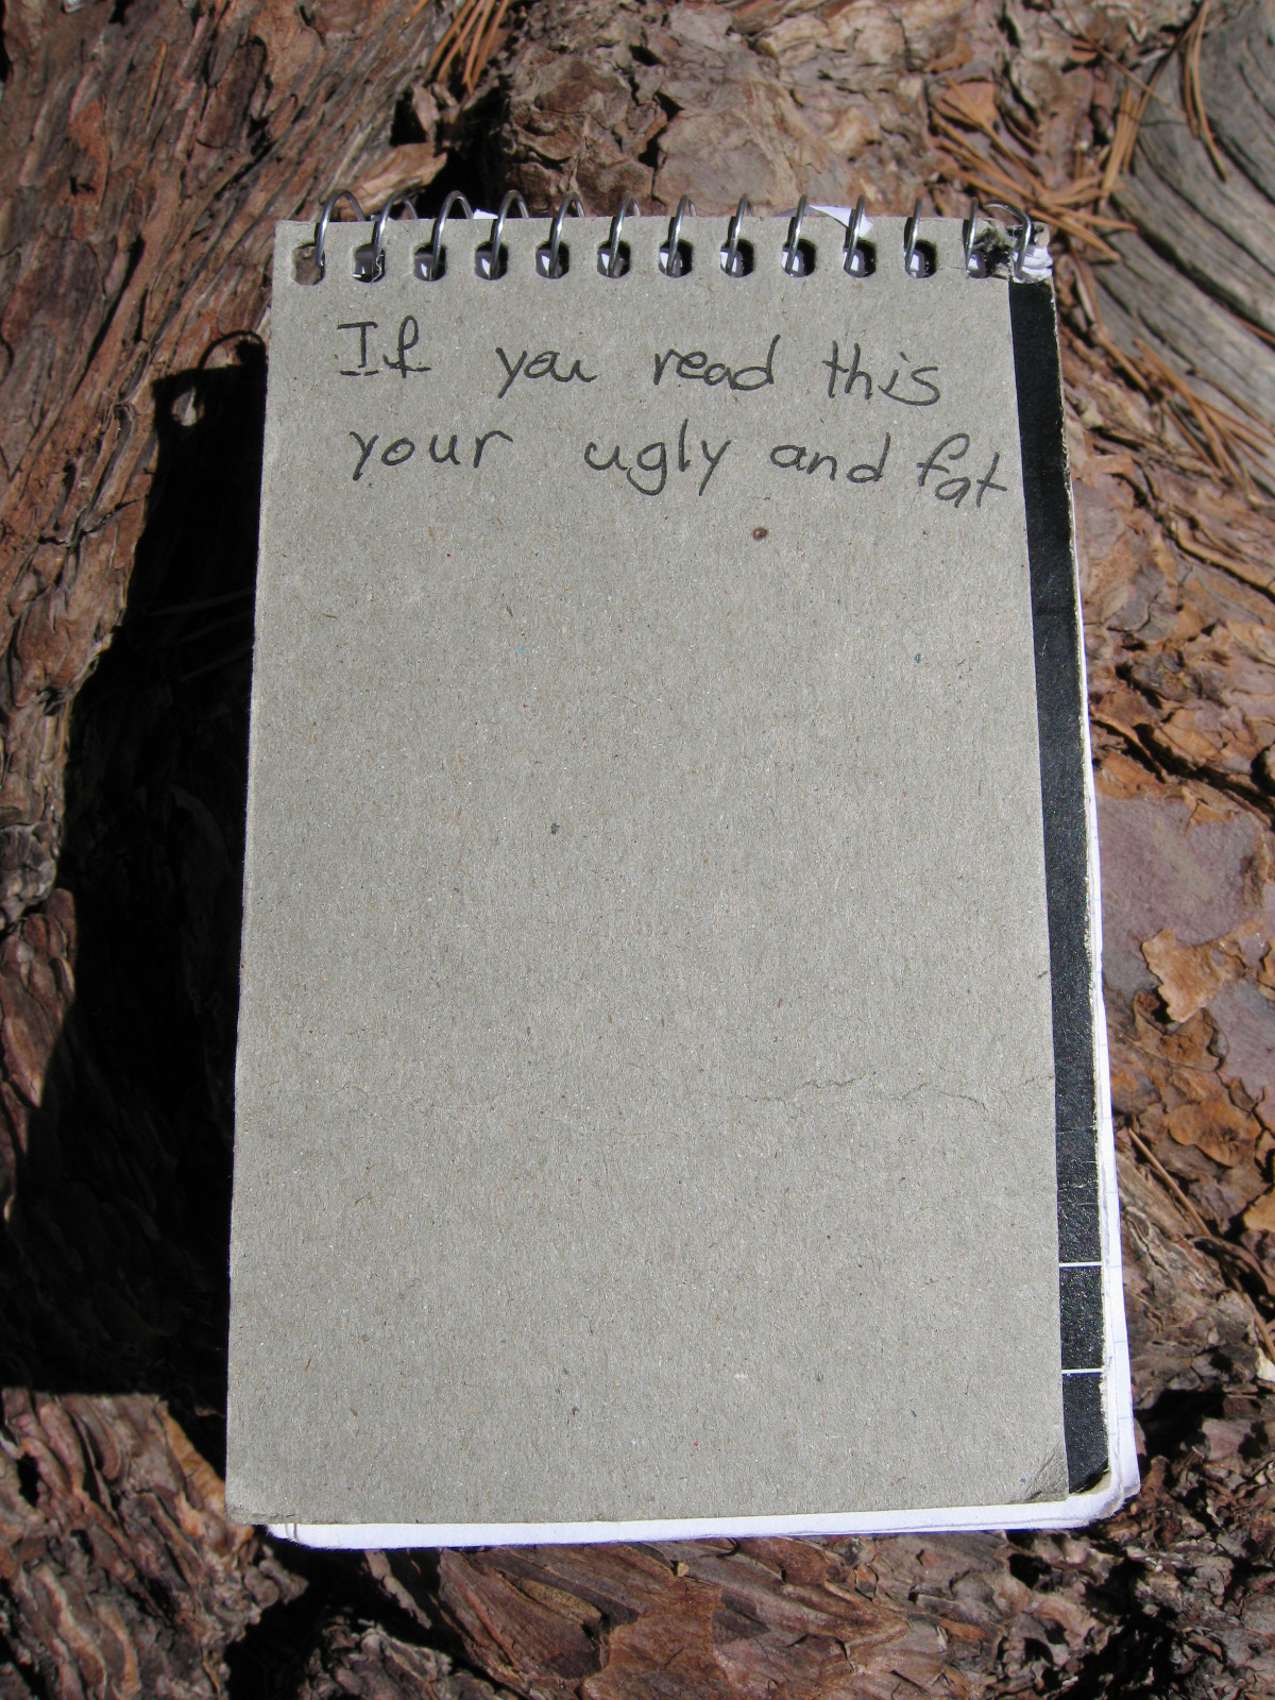 If you read this
your ugly and fat